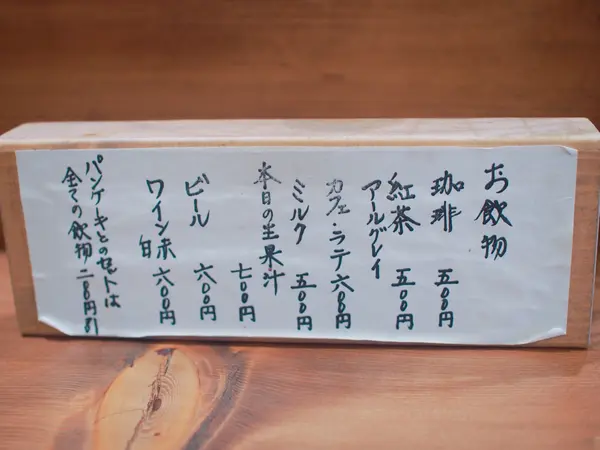 お飲物
珈琲 五〇〇円
紅茶 五〇〇円
アールグレイ
カフェ・ラテ 六〇〇円
ミルク 五〇〇円
本日の生果汁 七〇〇円
ビール 六〇〇円
ワイン 赤 白 六〇〇円
パンケーキとのセットは
全ての飲物二〇〇円引